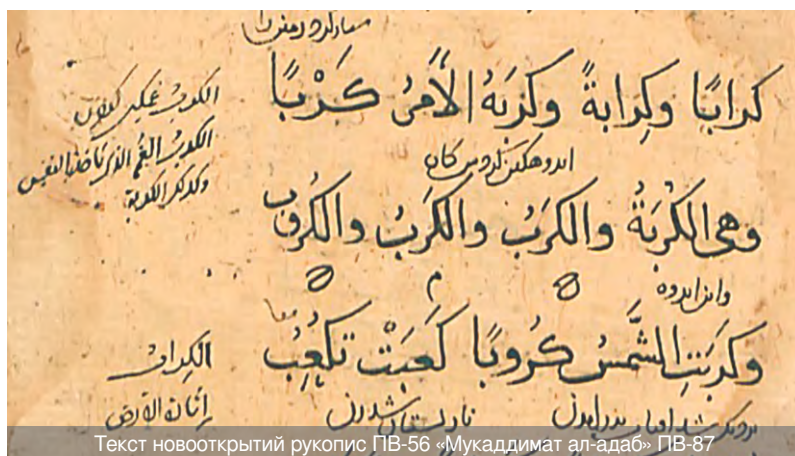 كرابًا وكِرابةً وكَرَبَهُ الأمرُ كَرْبًا
وهى الكُرْبَةُ والكُرَبُ والكَرَبُ والكروب
واين اندوه
وكَرَبَتِ الشَّمسُ كُروبًا كَعَبَتْ تَكْعُبُ
الكرب غمكين كردن
الكرب الغم الذى يأخذ بالنفس
وكذلك الكربة
الكراب
إثارة الأرض
Текст новооткрытий рукопис ПВ-56 «Мукаддимат ал-адаб» ПВ-87